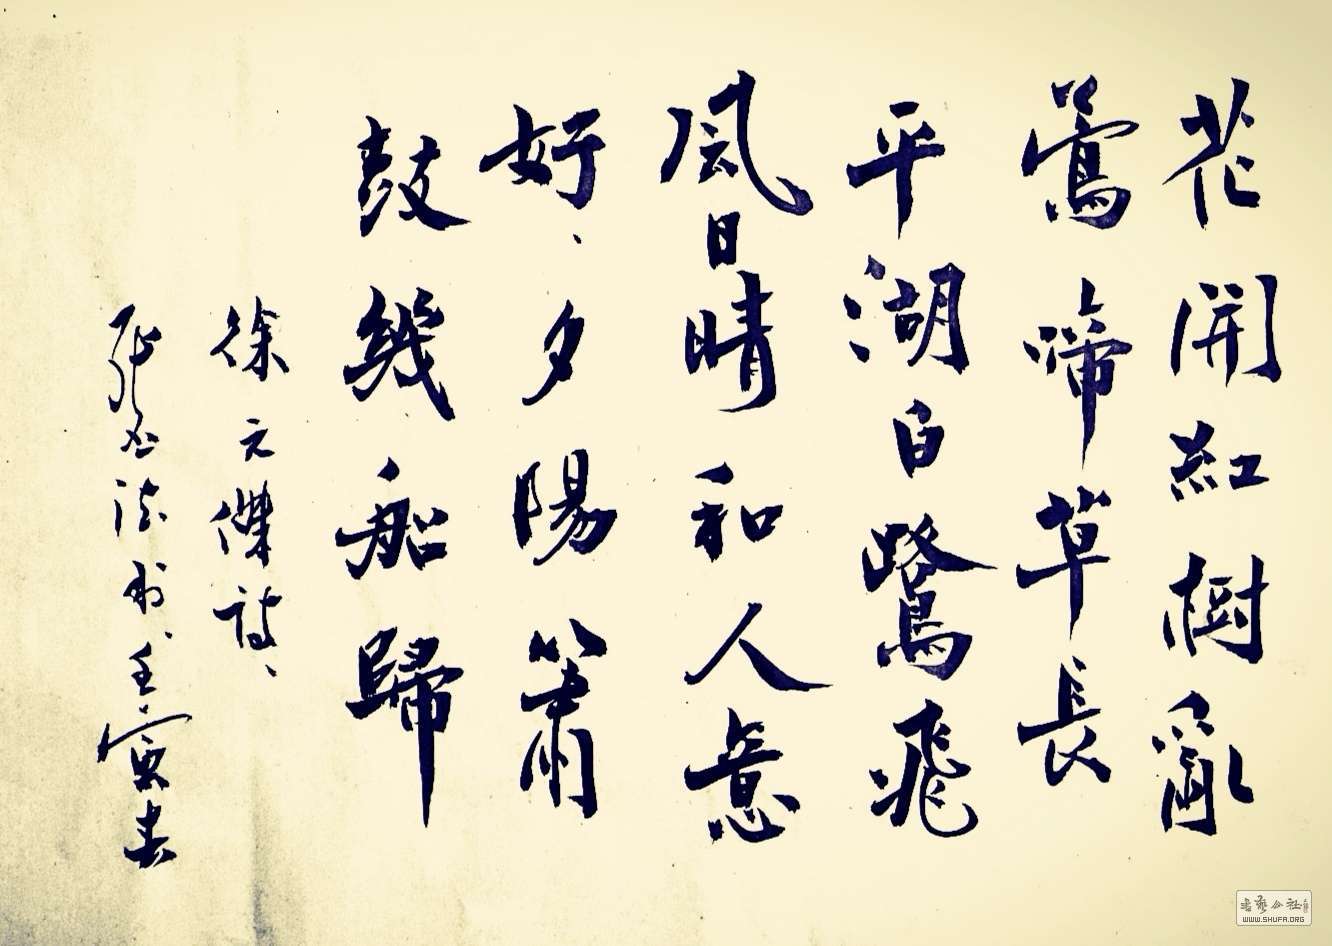 花開紅樹亂
鶯啼草長
平湖白鷺飛
風日晴和人意
好、夕陽簫
鼓幾船歸
徐元傑詩、
张法书、壬寅春
書藝公社
WWW.SHUFA.ORG